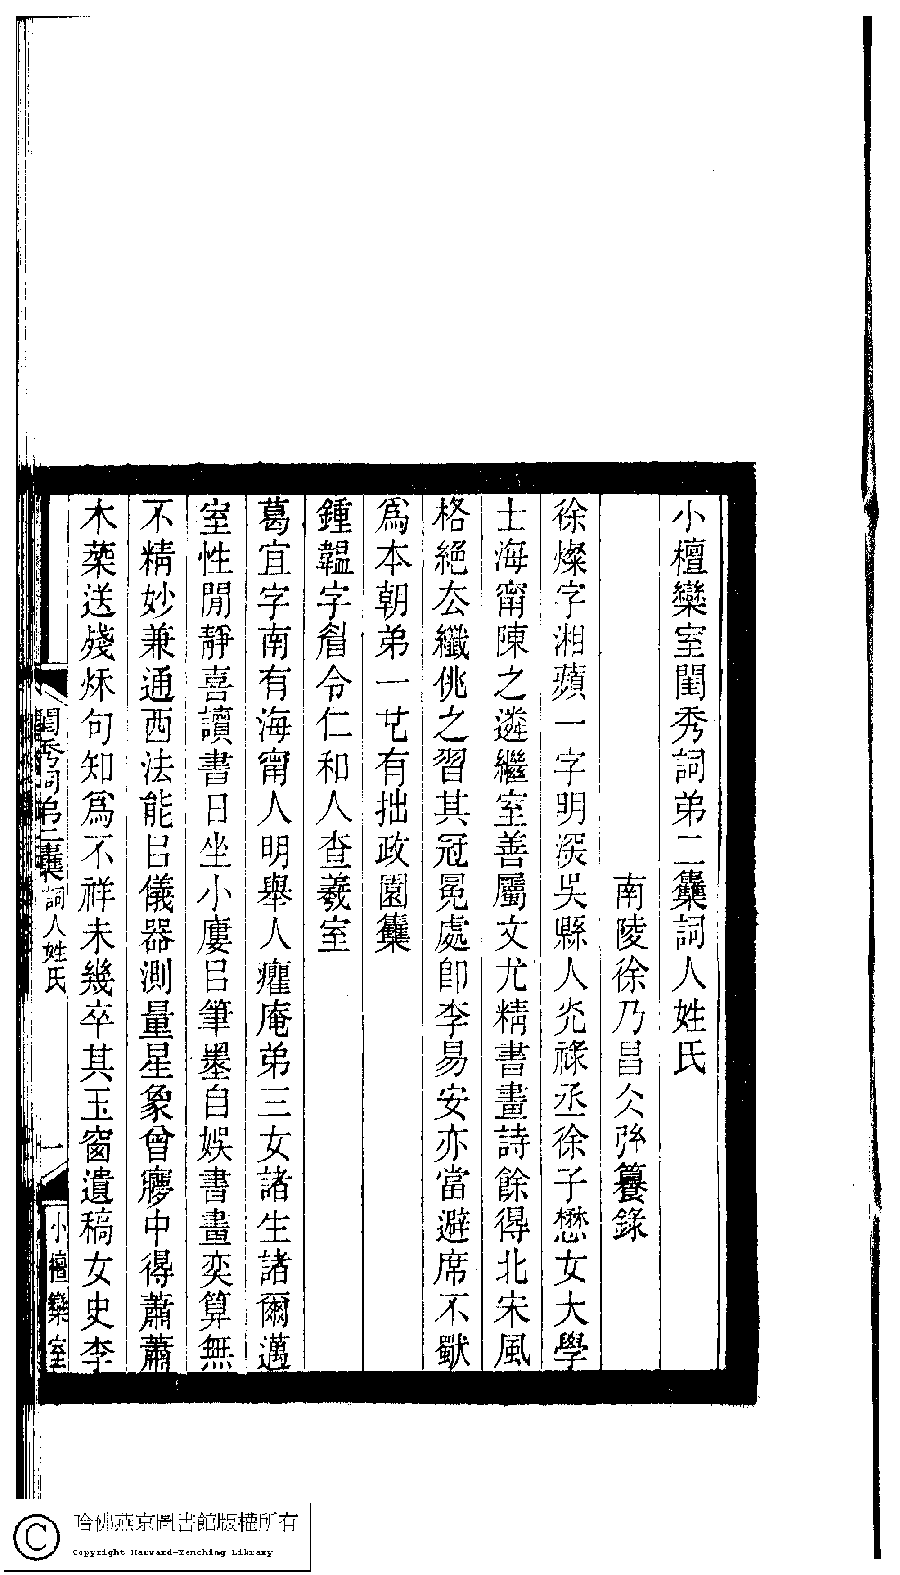 小檀欒室閨秀詞弟二集詞人姓氏
南陵徐乃昌仌弜纂錄
徐燦字湘蘋一字明深吳縣人光祿丞徐子懋女大學
士海甯陳之遴繼室善屬文尤精書畫詩餘得北宋風
格絕去纖佻之習其冠冕處卽李易安亦當避席不獨
爲本朝弟一也有拙政園集
鍾韞字眉令仁和人查羲室
葛宜字南有海甯人明舉人癯庵弟三女諸生諸爾邁
室性閒靜喜讀書日坐小廔㠯筆墨自娛書畫奕算無
不精妙兼通西法能㠯儀器測量星象曾㝱中得蕭蕭
木葉送殘秌句知爲不祥未幾卒其玉窗遺稿女史李
閨秀詞弟二集 詞人姓氏
一
小檀欒室
哈佛燕京圖書館版權所有
Copyright Harvard-Yenching Library